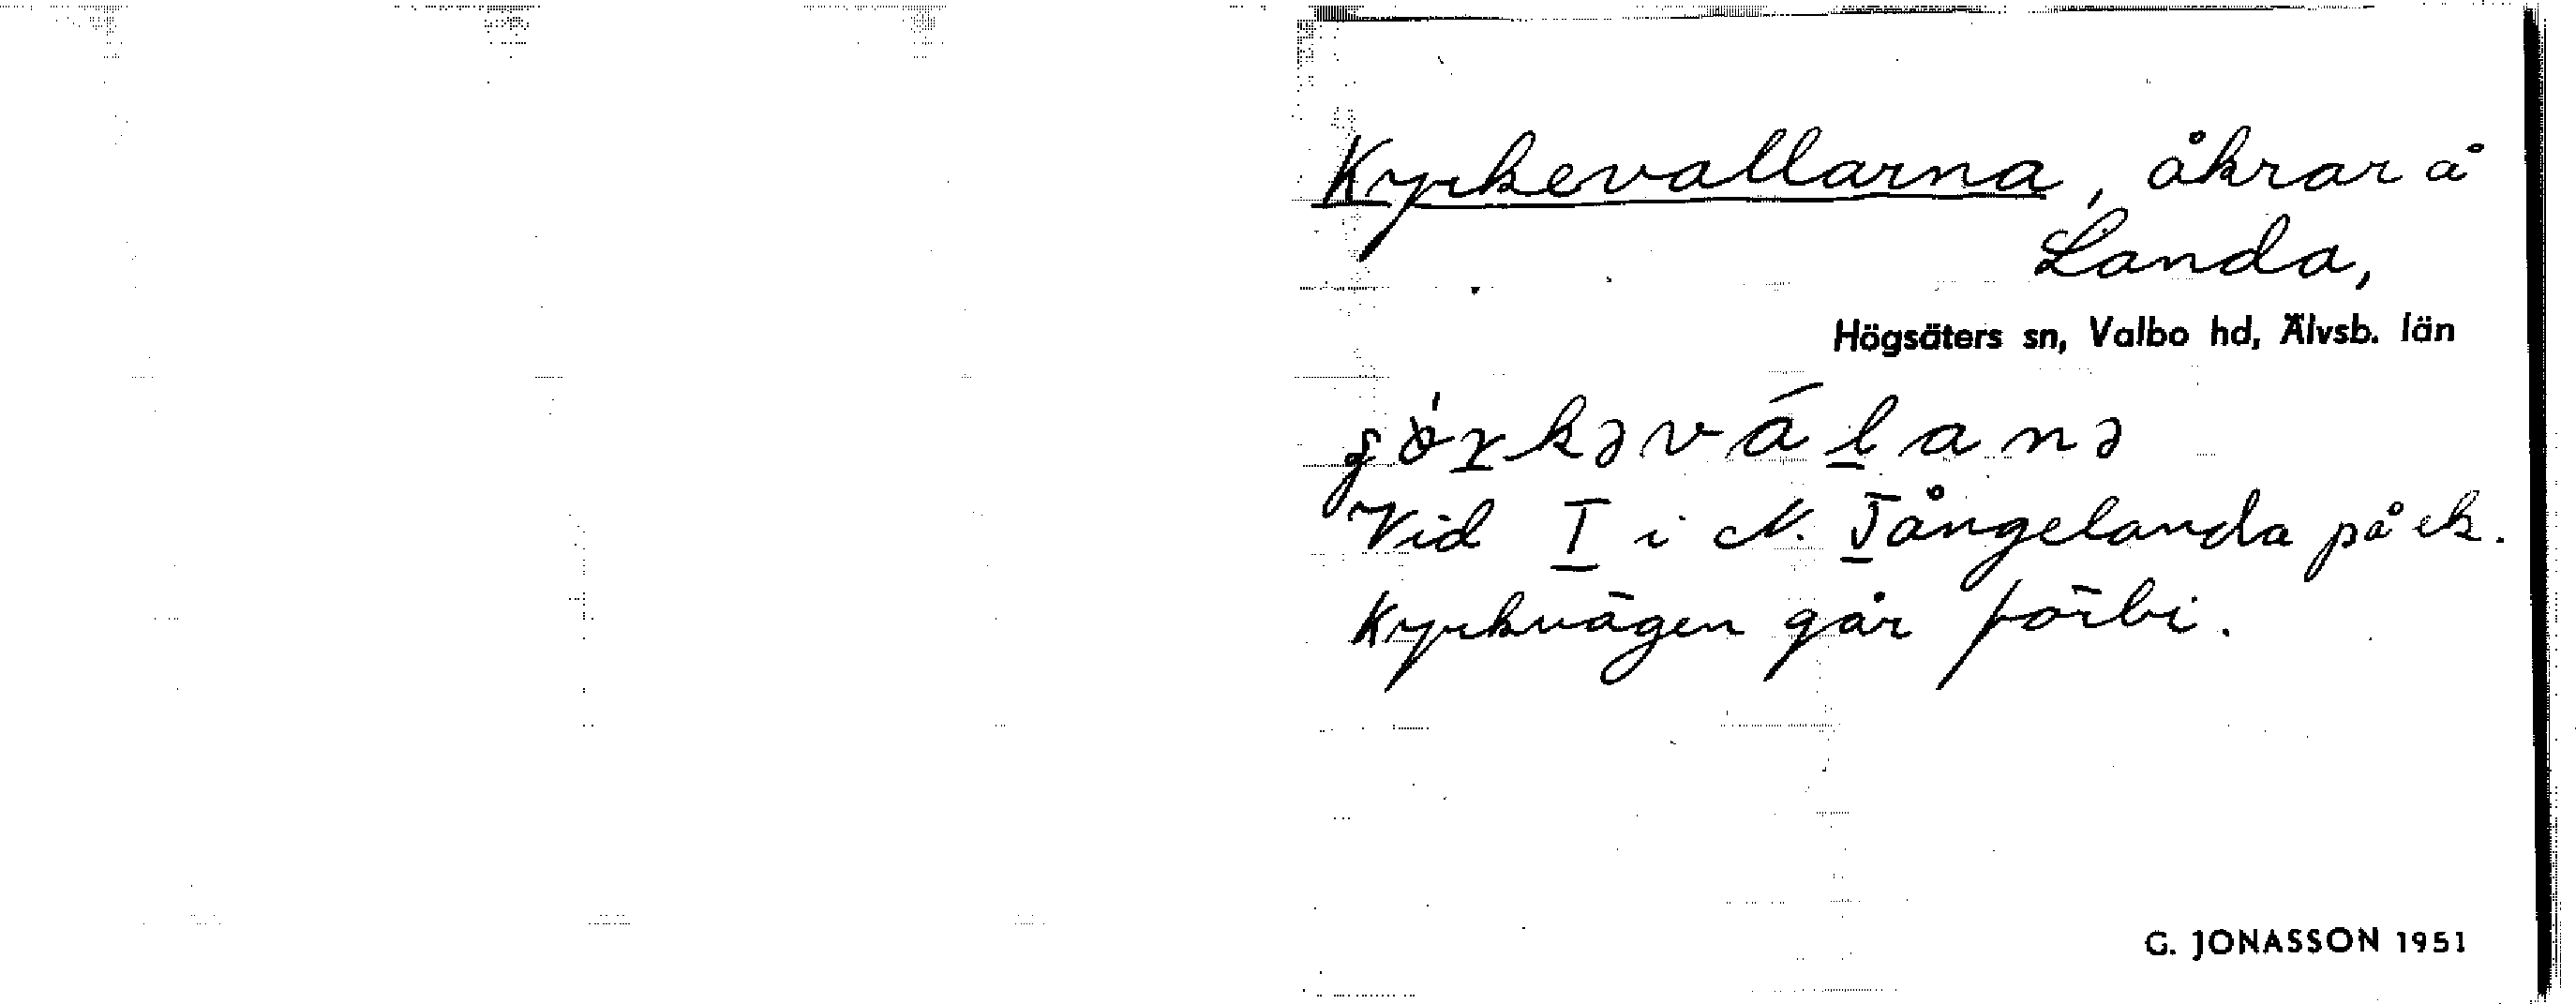 Kyrkevallarna, åkrar å
Landa,
Högsäters sn, Valbo hd, Älvsb. län
Vid I i N. Tångelanda på ek.
Kyrkvägen går förbi.
G. JONASSON 1951